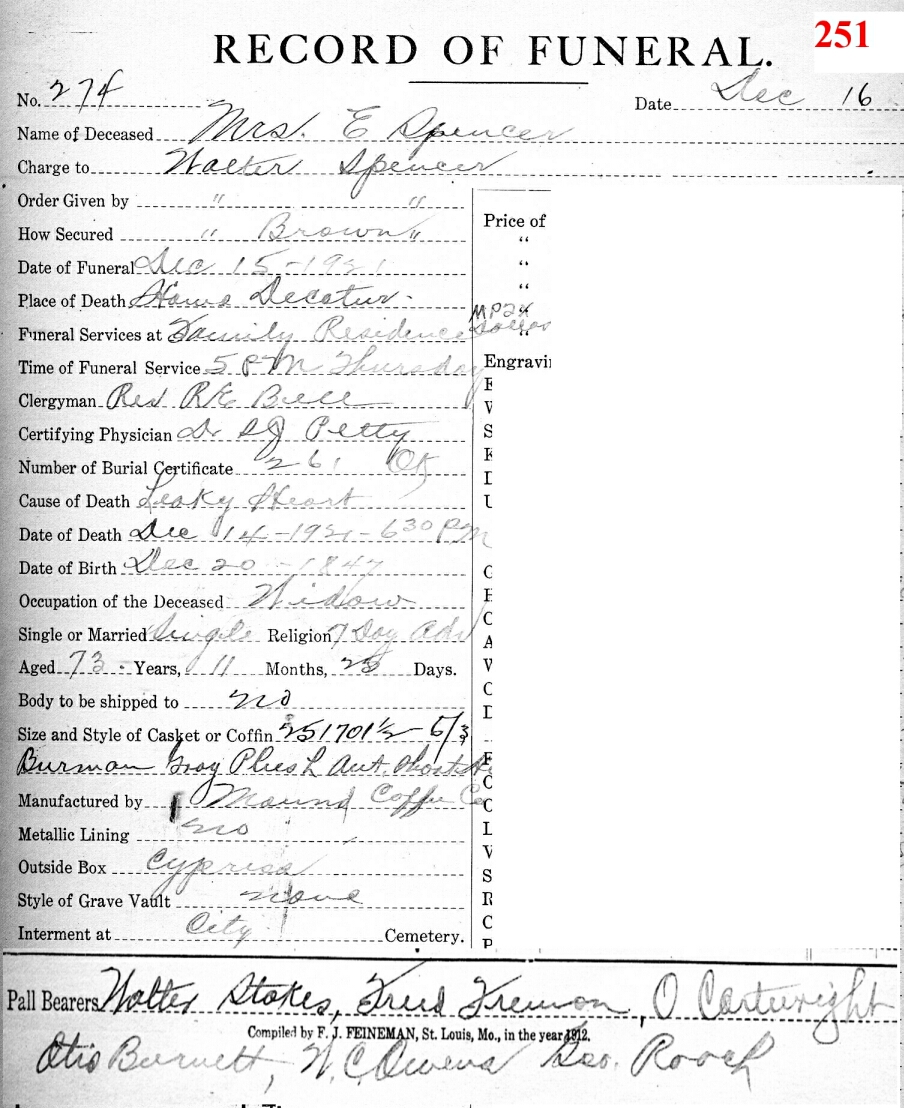 251
RECORD OF FUNERAL.
No. 274 Date Dec 16
Name of Deceased Mrs. E Spencer
Charge to Walter Spencer
Order Given by " "
How Secured " Brown "
Date of Funeral Dec 15-1921
Place of Death Home Decatur.
Funeral Services at Family Residence
Time of Funeral Service 5 PM Thursday
Clergyman Rev R E Bell
Certifying Physician Dr S J Petty
Number of Burial Certificate 261 OK
Cause of Death Leaky Heart
Date of Death Dec 14-1921-6 30 PM
Date of Birth Dec 20-1847
Occupation of the Deceased Widow
Single or Married Single Religion 7 Day Adv
Aged 73 Years, 11 Months, 25 Days.
Body to be shipped to no
Size and Style of Casket or Coffin 251701½-6/3
Burman Gray Plush
Manufactured by Mound Coffin Co
Metallic Lining no
Outside Box Cypress
Style of Grave Vault none
Interment at City Cemetery.
Price of
"
"
"
"
"
Engravi
Pall Bearers Walter Stokes, Fred Fremon, O Cartwright
Compiled by F. J. FEINEMAN, St. Louis, Mo., in the year 1912.
Otis Burnett, W. C. Owens Geo. Roach